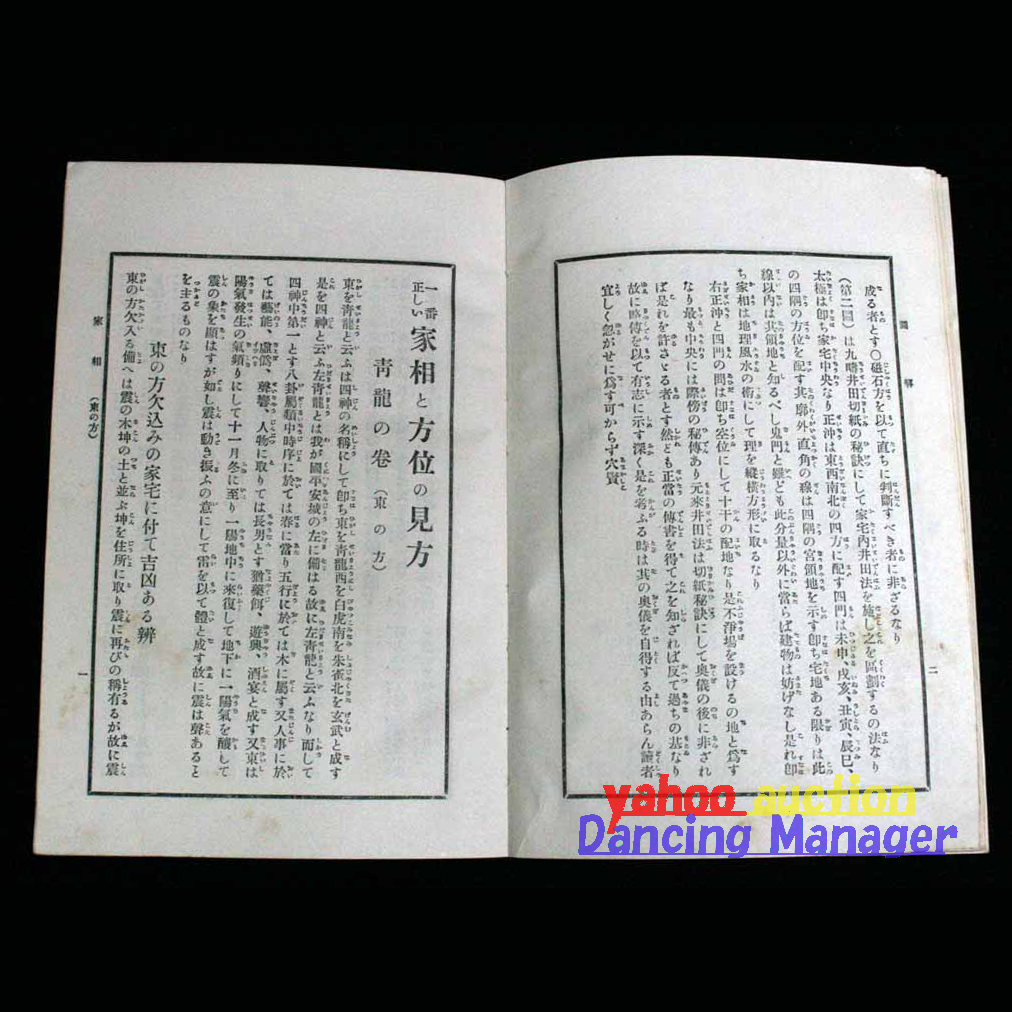 圖解
二
成る者とす〇磁石方を以て直ちに判斷すべき者に非ざるなり
(第二圖)は九疇井田切紙の秘訣にして家宅內井田法を施し之を區劃するの法なり
太極は卽ち家宅中央なり正沖は東西南北の四方に配す四門は未申、戌亥、丑寅、辰巳、
の四隅の方位を配す其廓外直角の線は四隅の宮領地を示す卽ち宅地ある限りは此
線以內は其領地と知るべし鬼門と雖ども此分量以外に當らば建物は妨げなし是れ卽
ち家相は地理風水の術にして理を縱橫方形に取るなり
右正沖と四門の間は卽ち空位にして十干の配地なり是不淨場を設けるの地と爲す
なり最も中央には際傍の秘傳あり元來井田法は切紙秘訣にして奧儀の後に非ざれ
ば是れを許さゞる者とす然ども正當の傳書を得て之を知ざれば反て過ちの基なり
故に略傳を以て有志に示す深く是を考ふる時は其の奧儀を自得する由あらん讀者
宜しく忽がせに爲す可からず穴賢
一番正しい 家相と方位の見方
靑龍の卷(東の方)
東を靑龍と云ふは四神の名稱にして卽ち東を靑龍西を白虎南を朱雀北を玄武と成す
是を四神と云ふ左靑龍とは我が國平安城の左に備はる故に左靑龍と云ふなり而して
四神中第一とす八卦屬類中時序に於ては春に當り五行に於ては木に屬す又人事に於
ては藝能、虛僞、聲響、人物に取りては長男とす猶藥餌、遊興、酒宴と成す又東は
陽氣發生の氣頻りにして十一月冬に至り一陽地中に來復して地下に一陽氣を釀して
震の象を顯はすが如し震は動き振ふの意にして雷を以て體と成す故に震は聲あると
を主るものなり
東の方欠込みの家宅に付て吉凶ある辨
東の方欠入る備へは震の木坤の土と並ぶ坤を住所に取り震に再びの稱有るが故に震
家相
(東の方)
一
yahoo auction
Dancing Manager